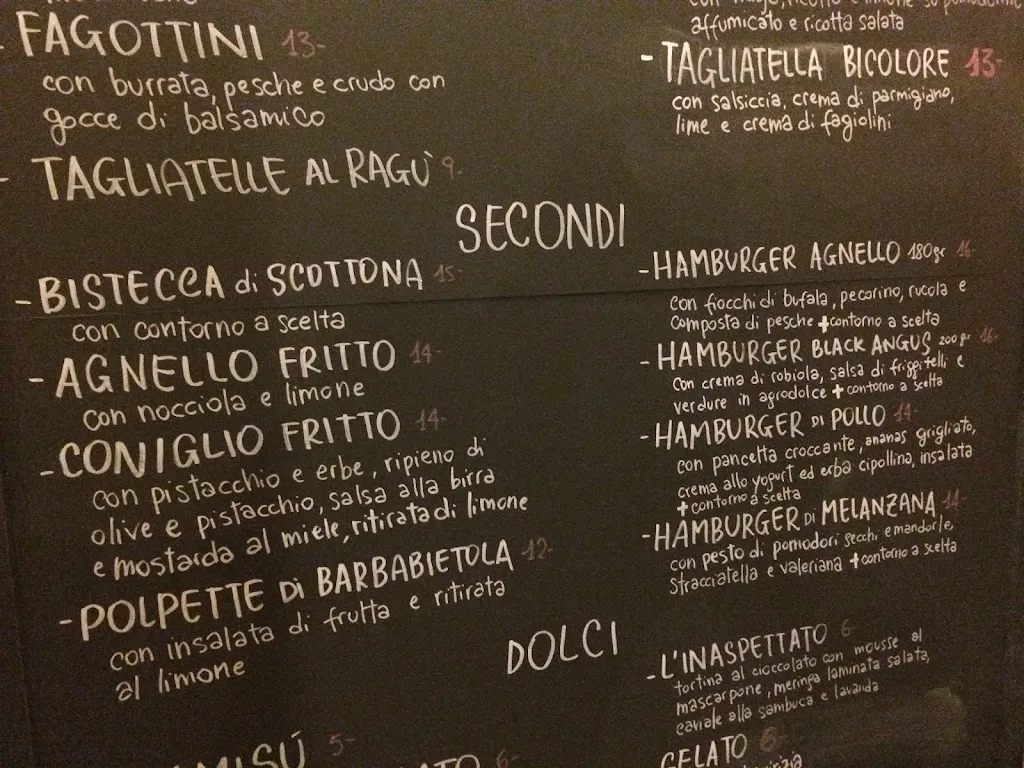 FAGOTTINI 13-
con burrata, pesche e crudo con
gocce di balsamico
- TAGLIATELLE AL RAGÙ 9-
affumicato e ricotta salata
- TAGLIATELLA BICOLORE 13-
con salsiccia, crema di parmigiano,
lime e crema di fagiolini
SECONDI
- BISTECCA di SCOTTONA 15-
con contorno a scelta
- AGNELLO FRITTO 14-
con nocciola e limone
- CONIGLIO FRITTO 14-
con pistacchio e erbe, ripieno di
olive e pistacchio, salsa alla birra
e mostarda al miele, ritirata di limone
- POLPETTE Di BARBABIETOLA 12-
con insalata di frutta e ritirata
al limone
- HAMBURGER AGNELLO 180gr 16-
con fiocchi di bufala, pecorino, rucola e
composta di pesche + contorno a scelta
- HAMBURGER BLACK ANGUS 200gr 16-
con crema di robiola, salsa di friggitelli e
verdure in agrodolce + contorno a scelta
- HAMBURGER Di POLLO 14-
con pancetta croccante, ananas grigliato,
crema allo yogurt ed erba cipollina, insalata
+ contorno a scelta
- HAMBURGER Di MELANZANA 14-
con pesto di pomodori secchi e mandorle,
stracciatella e valeriana + contorno a scelta
DOLCI
- L'INASPETTATO 6-
tortina al cioccolato con mousse al
mascarpone, meringa laminata salata,
caviale alla sambuca e lavanda
GELATO 6-
MISÙ 5-
ATO 6-